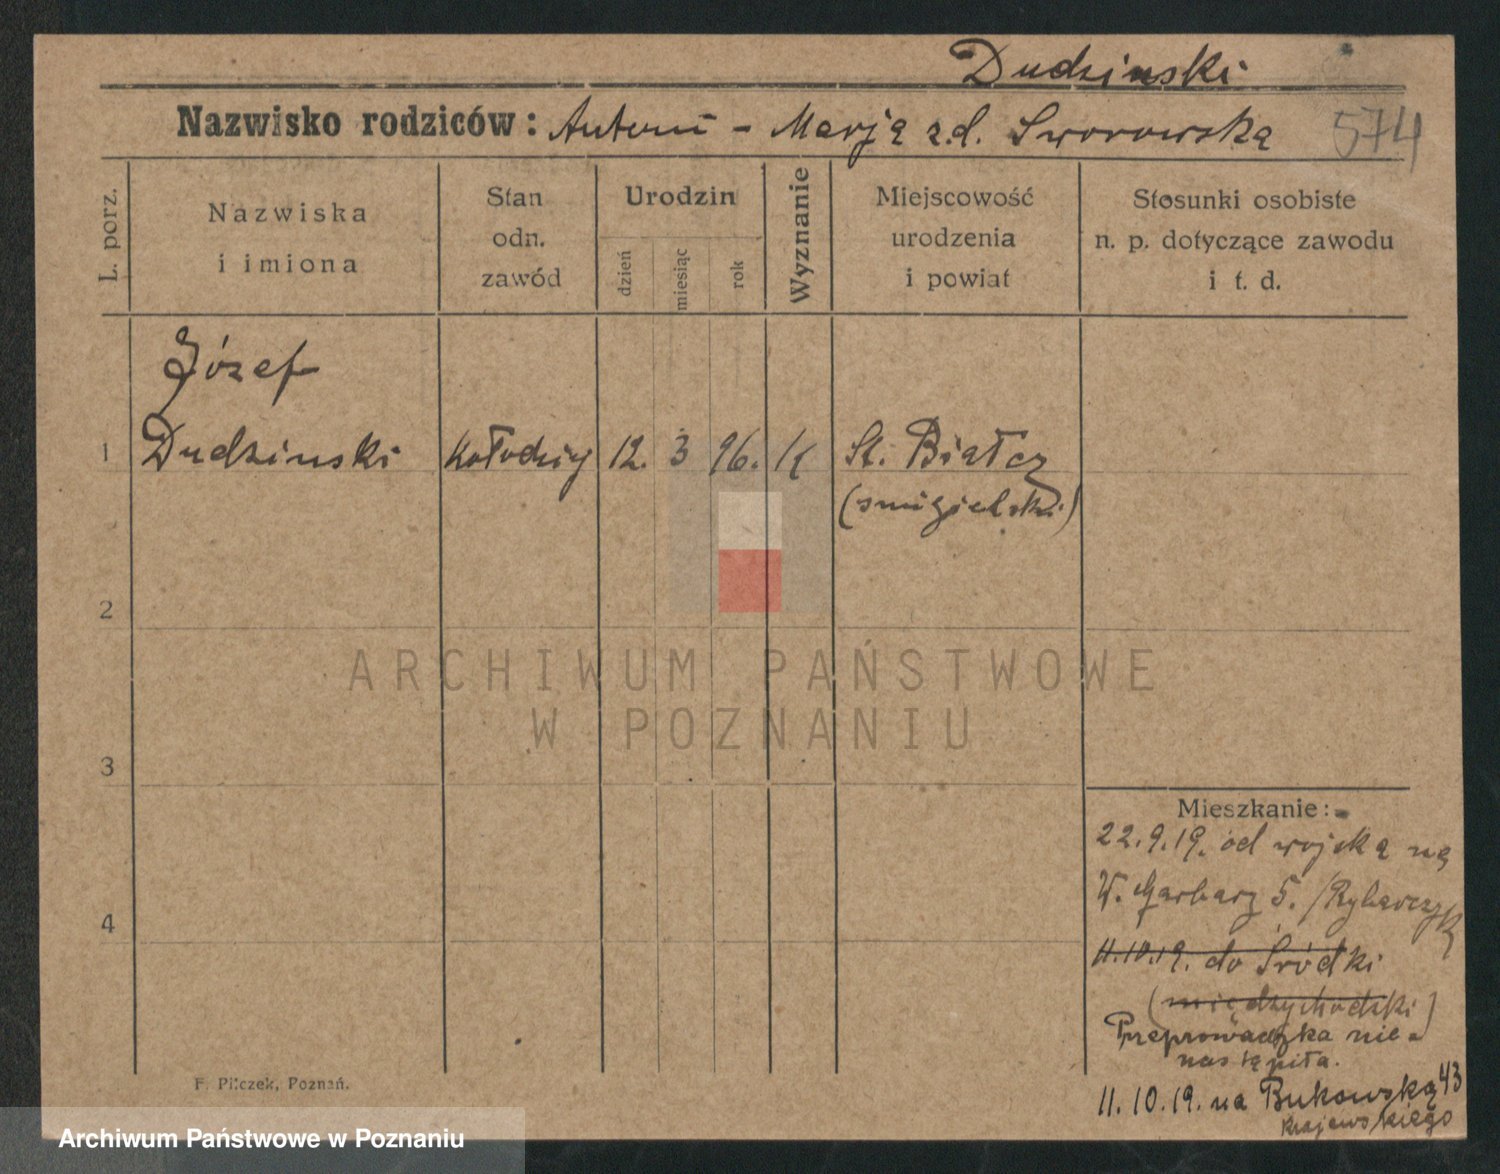 Dudzinski
Nazwisko rodziców: Antoni - Marja z.d. Sworowska 574
L. porz.
Nazwiska
i imiona
Stan
odn.
zawód
Urodzin
dzień
miesiąc
rok
Wyznanie
Miejscowość
urodzenia
i powiat
Stosunki osobiste
n. p. dotyczące zawodu
i t. d.
Józef
1 Dudzinski kołodziej 12. 3 96. K St. Białcz
(smigielski)
2
ARCHIWUM PAŃSTWOWE
W POZNANIU
3
Mieszkanie:
22.9.19. od wojska na
W. Garbary 5. /Rybarczyk
4
11.10.19. do Śródki
(międzychodzki)
Przeprowadzka nie-
nastąpiła.
11.10.19. na Bukowską 43
Krajewskiego
F. Pilczek, Poznań.
Archiwum Państwowe w Poznaniu